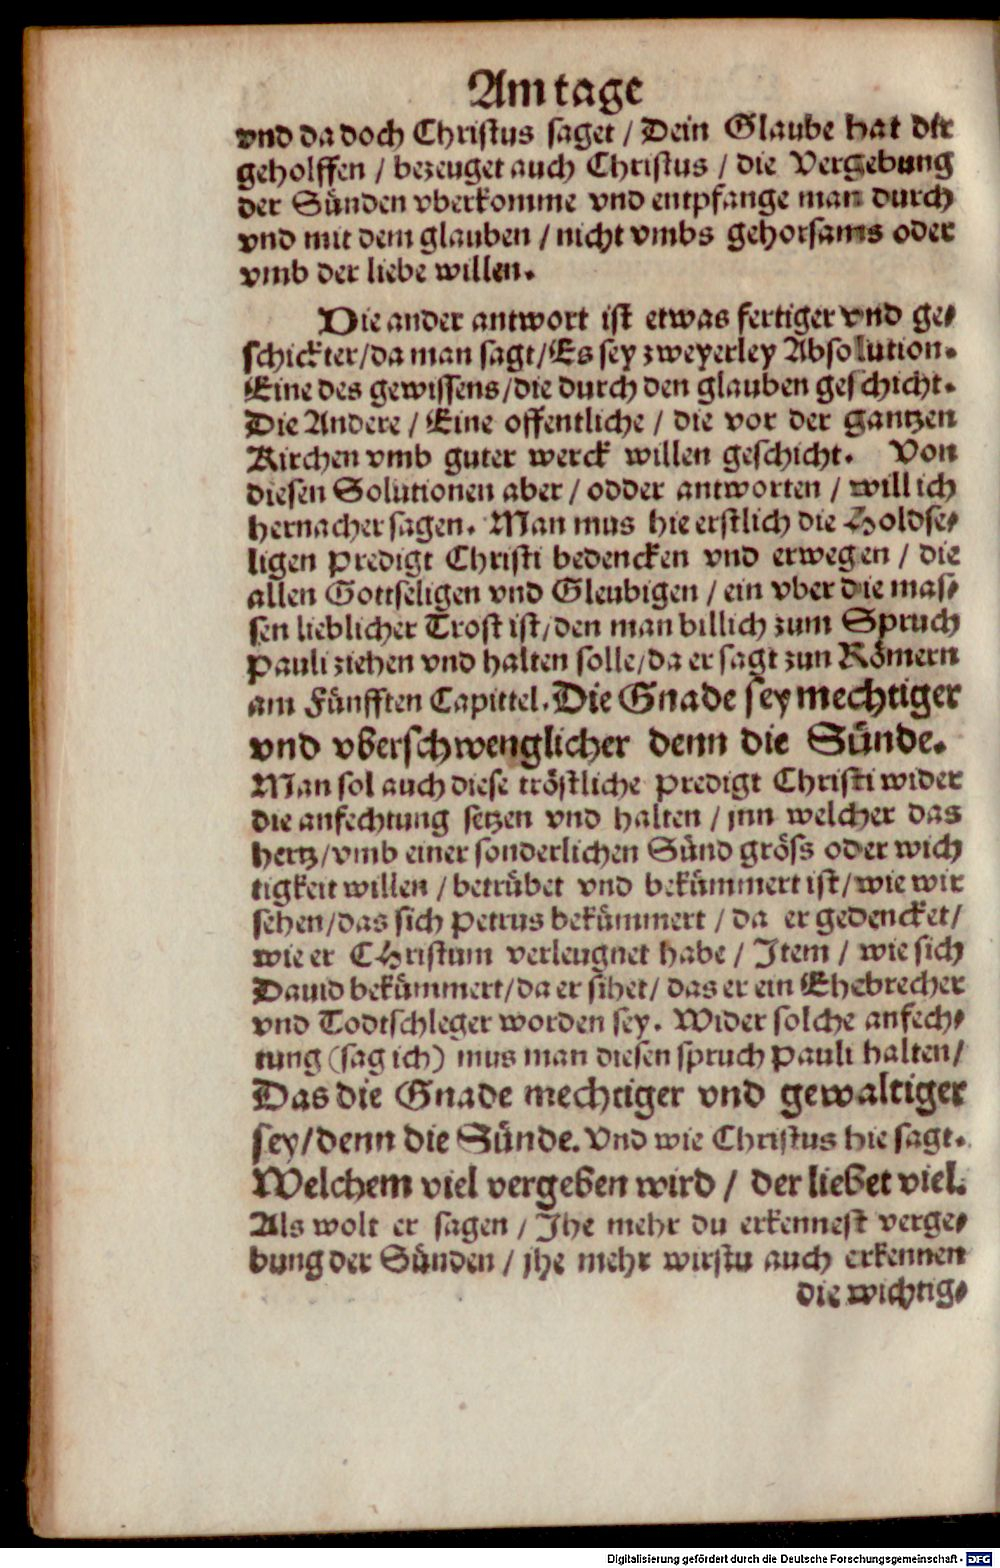 Am tage
vnd da doch Christus saget / Dein Glaube hat dir
geholffen / bezeuget auch Christus / die Vergebung
der Sünden vberkomme vnd entpfange man durch
vnd mit dem glauben / nicht vmbs gehorsams oder
vmb der liebe willen.
Die ander antwort ist etwas fertiger vnd ge-
schickter/da man sagt/Es sey zweyerley Absolution.
Eine des gewissens/die durch den glauben geschicht.
Die Andere / Eine offentliche / die vor der gantzen
Kirchen vmb guter werck willen geschicht. Von
diesen Solutionen aber / odder antworten / will ich
hernacher sagen. Man mus hie erstlich die Holdse-
ligen Predigt Christi bedencken vnd erwegen / die
allen Gottseligen vnd Gleubigen / ein vber die mas-
sen lieblicher Trost ist/den man billich zum Spruch
Pauli ziehen vnd halten solle/da er sagt zun Römern
am Fünfften Capittel. Die Gnade sey mechtiger
vnd vberschwenglicher denn die Sünde.
Man sol auch diese tröstliche Predigt Christi wider
die anfechtung setzen vnd halten / jnn welcher das
hertz/vmb einer sonderlichen Sünd gröss oder wich
tigkeit willen / betrübet vnd bekümmert ist/wie wir
sehen/das sich Petrus bekümmert / da er gedencket/
wie er CHristum verleugnet habe / Item / wie sich
Dauid bekümmert/da er sihet/ das er ein Ehebrecher
vnd Todtschleger worden sey. Wider solche anfech-
tung (sag ich) mus man diesen spruch Pauli halten/
Das die Gnade mechtiger vnd gewaltiger
sey/denn die Sünde. Vnd wie Christus hie sagt.
Welchem viel vergeben wird / der liebet viel.
Als wolt er sagen / Jhe mehr du erkennest verge-
bung der Sünden / jhe mehr wirstu auch erkennen
die wichtig-
Digitalisierung gefördert durch die Deutsche Forschungsgemeinschaft - DFG